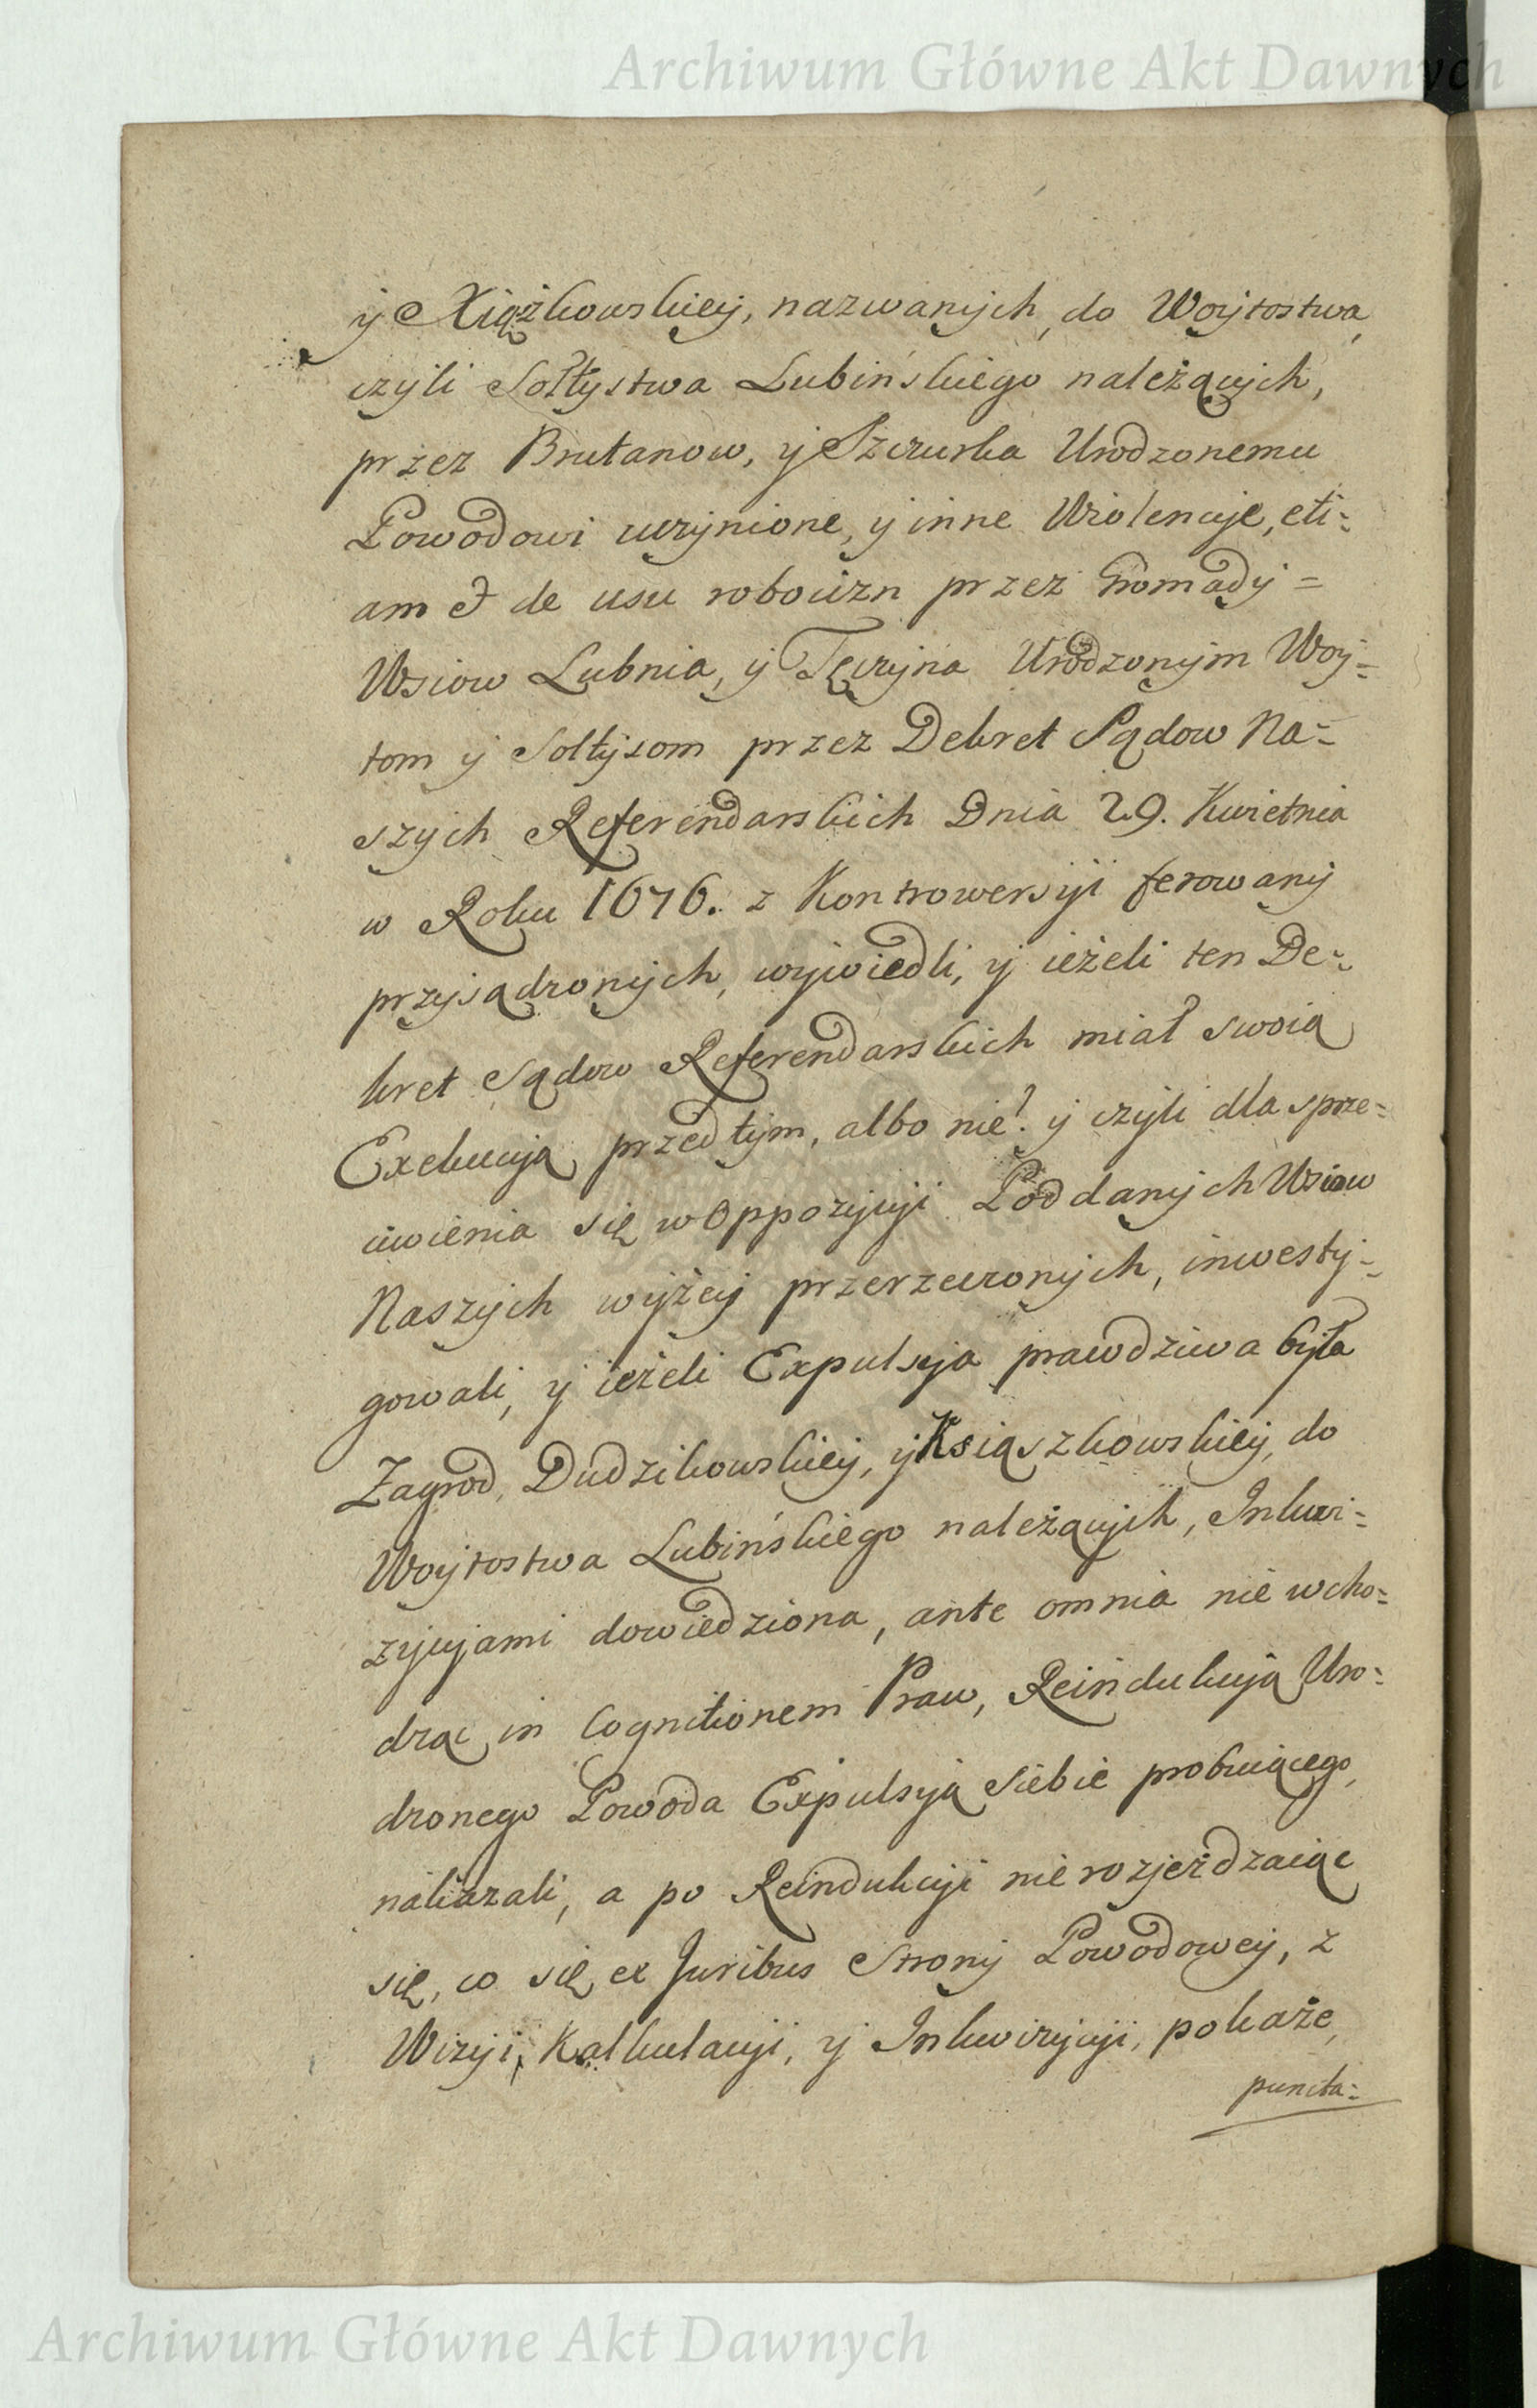 Archiwum Główne Akt Dawnych
ÿ Xiążkowskiey, nazwanÿch, do Woÿtostwa,
czÿli Sołtÿstwa Lubińskiego należącÿch,
przez Brutanow, ÿ Szczurka Urodzonemu
Powodowi uczÿnione, ÿ inne Wiolencÿe, eti-
am & de usu robocizn przez Gromadÿ=
Wsiow Lubnia, ÿ Tęczÿna Urodzonÿm Woÿ=
tom ÿ Sołtÿsom przez Dekret Sądow Na=
szÿch Referendarskich Dnia 29. Kwietnia
w Roku 1676. z Kontrowersÿi ferowanÿ
przÿsądzonÿch, wÿwiedli, ÿ ieżeli ten De=
kret Sądow Referendarskich miał swoią
Exekucÿą przedtÿm, albo nie? ÿ czÿli dla sprze=
ciwienia się w Oppozÿcÿi Poddanÿch Wsiow
Naszÿch wÿżeÿ przerzeczonÿch, inwestÿ=
gowali, ÿ ieżeli Expulsÿa prawdziwa bÿła
Zagrod, Dudzikowskieÿ, ÿ Ksiąszkowskieÿ, do
Woÿtostwa Lubińskiego należącÿch, Inkwi=
zÿcÿami dowiedziona, ante omnia nie wcho=
dząc in Cognitionem Praw, Reindukcÿą Uro=
dzonego Powoda Expulsÿą siebie probuiącego,
nakazali, a po Reindukcÿi nie rozjeżdzaiąc
się, co się ex Juribus Stronÿ Powodoweÿ, z
Wizÿi, Kalkulacÿi, ÿ Inkwizÿcÿi, pokaże,
puncta=
Archiwum Główne Akt Dawnych